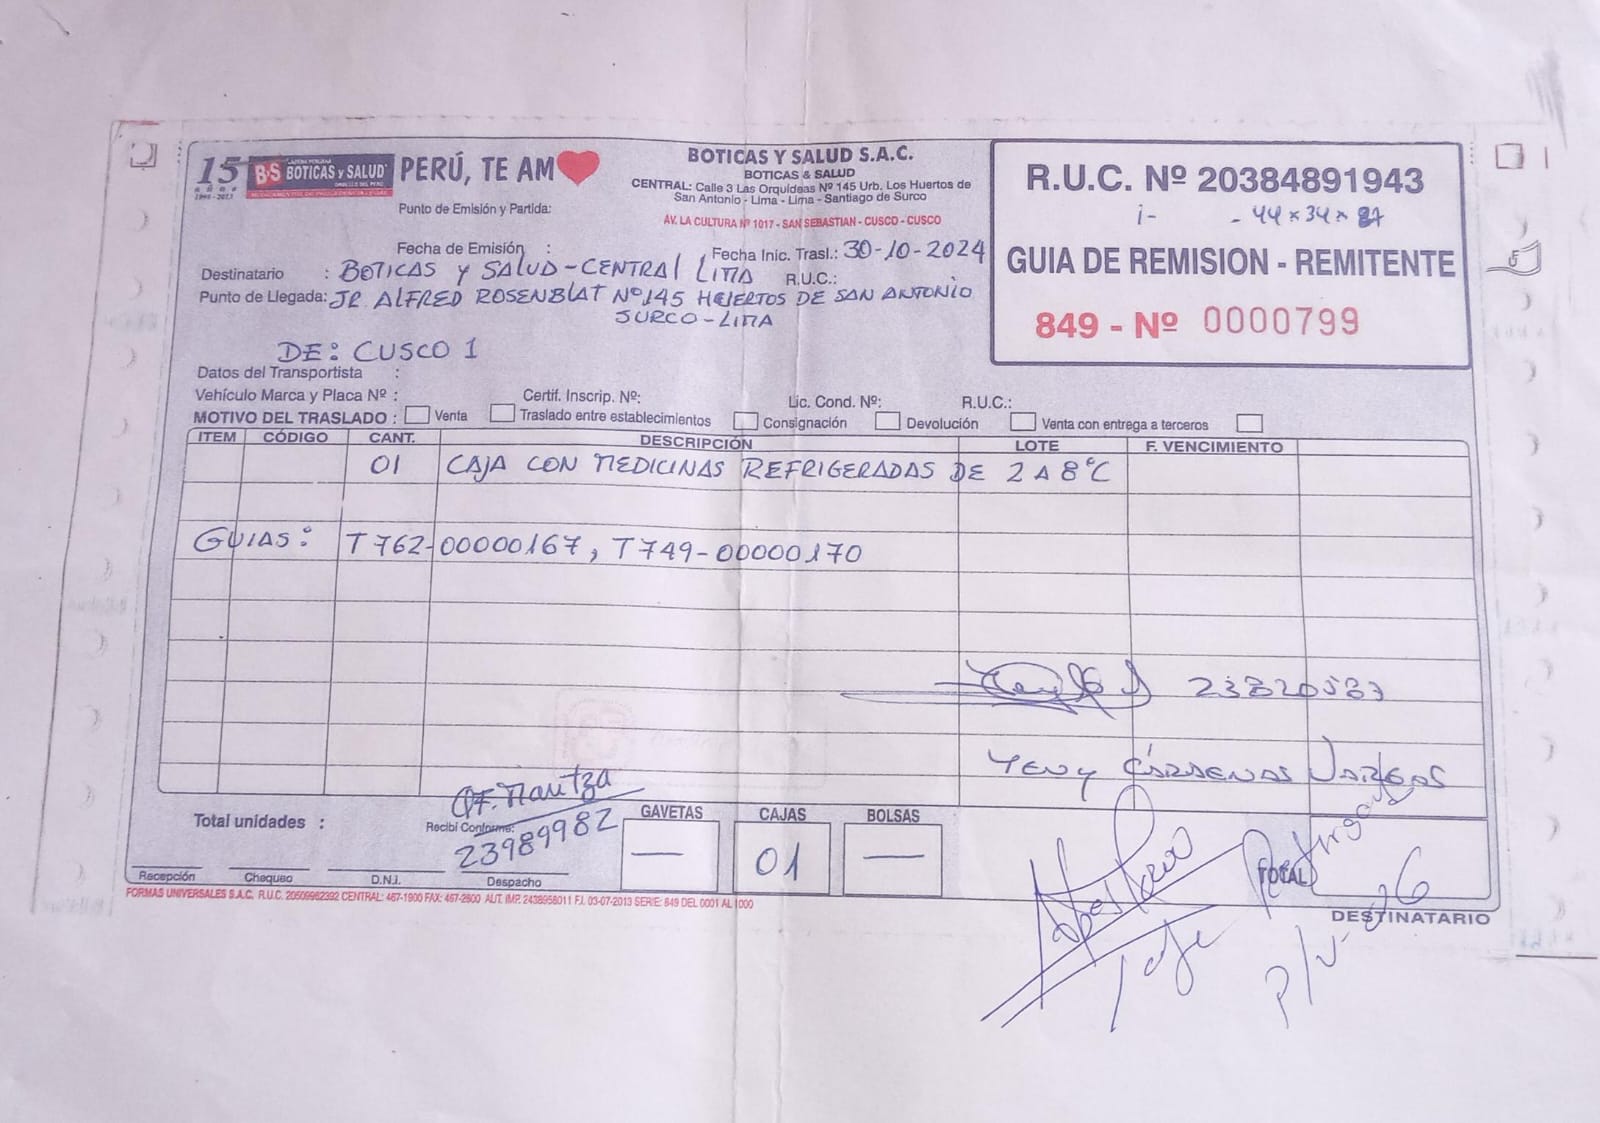 15 años 1998-2013 B·S CADENA PERUANA BOTICAS y SALUD ORGULLO DEL PERÚ PERÚ, TE AM
BOTICAS Y SALUD S.A.C.
BOTICAS & SALUD
CENTRAL: Calle 3 Las Orquídeas Nº 145 Urb. Los Huertos de
San Antonio - Lima - Lima - Santiago de Surco
Punto de Emisión y Partida:
AV. LA CULTURA Nº 1017 - SAN SEBASTIAN - CUSCO - CUSCO
R.U.C. Nº 20384891943
- 44 x 34 x
GUIA DE REMISION - REMITENTE
849 - Nº 0000799
Fecha de Emisión : Fecha Inic. Trasl.: 30-10-2024
Destinatario : BOTICAS Y SALUD-CENTRAL LIMA R.U.C.:
Punto de Llegada: JR ALFRED ROSENBLAT Nº145 HUERTOS DE SAN ANTONIO
SURCO-LIMA
DE: CUSCO 1
Datos del Transportista :
Vehículo Marca y Placa Nº : Certif. Inscrip. Nº: Lic. Cond. Nº: R.U.C.:
MOTIVO DEL TRASLADO : Venta Traslado entre establecimientos Consignación Devolución Venta con entrega a terceros
ITEM CÓDIGO CANT. DESCRIPCIÓN LOTE F. VENCIMIENTO
01 CAJA CON MEDICINAS REFRIGERADAS DE 2 A 8°C
GUIAS: T762-00000167, T749-00000170
Yeny Cárdenas Vargas
Q.F. Maritza
Total unidades : Recibí Conforme: GAVETAS CAJAS BOLSAS
23989982 — 01 —
TOTAL
Recepción Chequeo D.N.I. Despacho
FORMAS UNIVERSALES S.A.C. R.U.C. 20509962392 CENTRAL: 467-1900 FAX: 467-2800 AUT. IMP. 2438956011 F.I. 03-07-2013 SERIE: 849 DEL 0001 AL 1000
DESTINATARIO